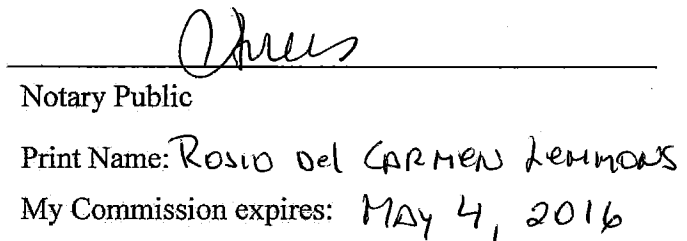 Notary Public
Print Name: Rosio Del CARMEN LEMMONS
My Commission expires: MAY 4, 2016